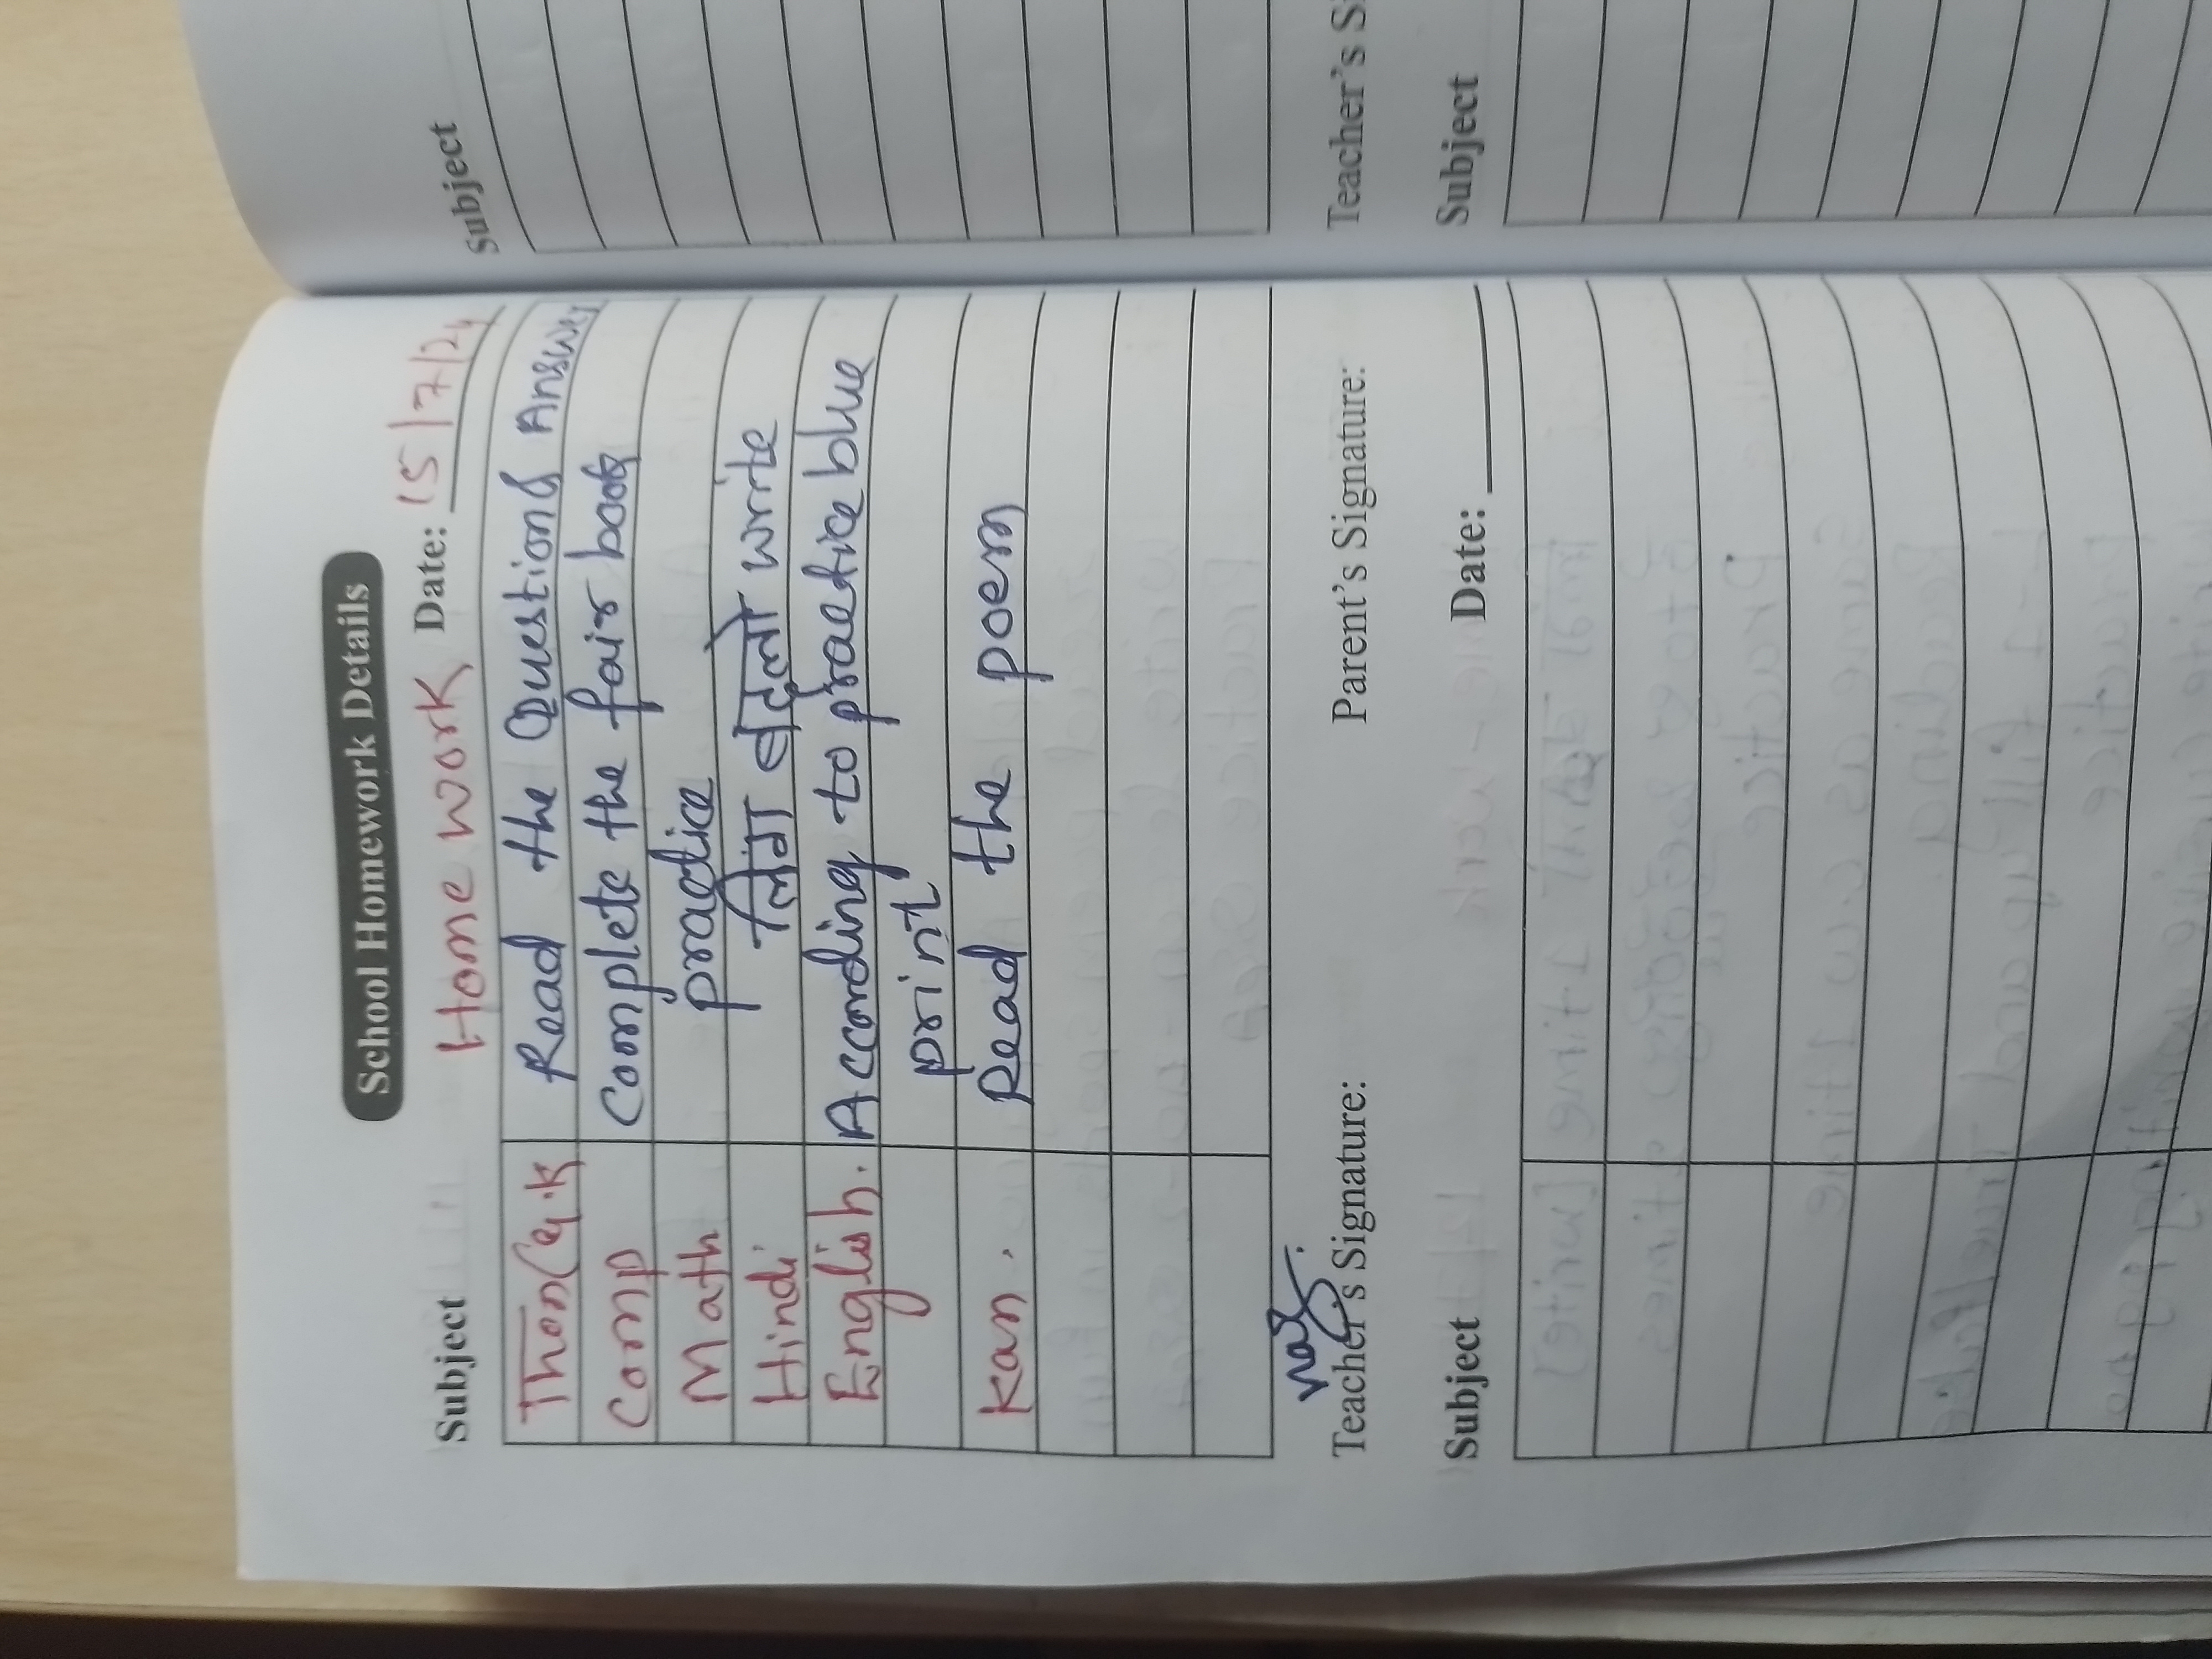 School Homework Details
Subject Home work Date: 15/7/24
Read the Question & Answer
Comp Complete the fair book
Math practice
Hindi लिंग बदलो write
English. According to practice blue
print
Kan. Read the poem
Teacher's Signature: Parent's Signature:
Subject Date:
Subject
Teacher's
Subject